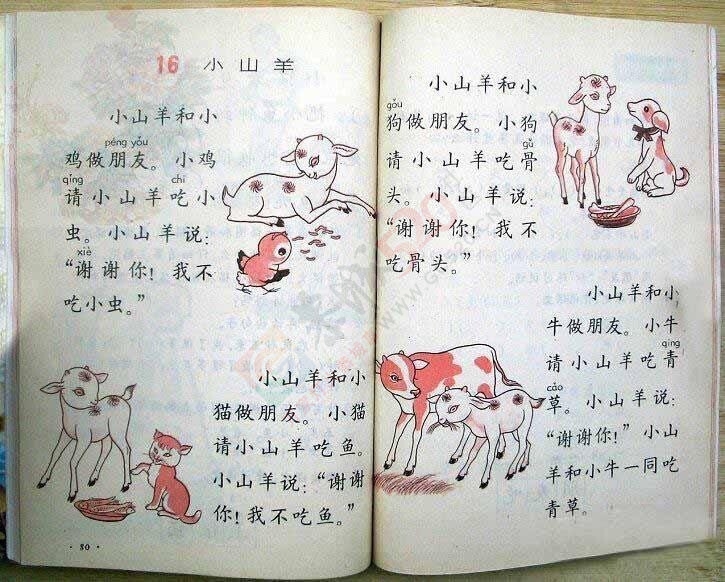 16 小山羊
小山羊和小
péng yǒu
鸡做朋友。小鸡
qǐng chī
请小山羊吃小
虫。小山羊说:
xiè
“谢谢你!我不
吃小虫。”
小山羊和小
猫做朋友。小猫
请小山羊吃鱼。
小山羊说:“谢谢
你!我不吃鱼。”
·80·
小山羊和小
gǒu
狗做朋友。小狗
请小山羊吃骨
头。小山羊说:
“谢谢你!我不
吃骨头。”
小山羊和小
牛做朋友。小牛
qīng
请小山羊吃青
cǎo
草。小山羊说:
“谢谢你!”小山
羊和小牛一同吃
青草。